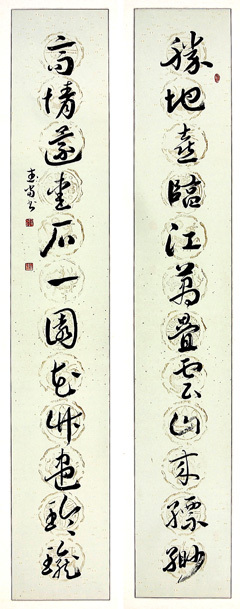 勝地喜臨江萬疊雲山來縹緲
高情兼愛石一園花竹畫玲瓏